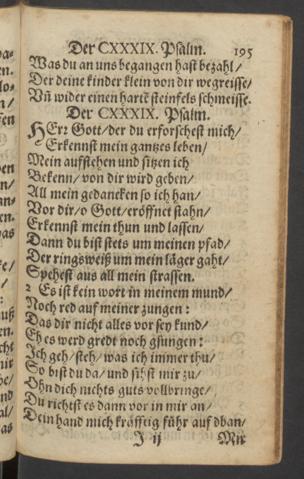 Der CXXXIX. Psalm. 195
Was du an uns begangen hast bezahl/
Der deine kinder klein von dir wegreisse/
Vñ wider einen hartẽ steinfels schmeisse.
Der CXXXIX. Psalm.
HErꝛ Gott/ der du erforschest mich/
Erkennst mein gantzes leben/
Mein aufstehen und sitzen ich
Bekenn/ von dir wird geben/
All mein gedancken so ich han/
Vor dir/ o Gott/ eröffnet stahn/
Erkennst mein thun und lassen/
Dann du bist stets um meinen pfad/
Der ringsweiß um mein läger gaht/
Spehest aus all mein strassen.
2 Es ist kein wort in meinem mund/
Noch red auf meiner zungen:
Das dir nicht alles vor sey kund/
Eh es werd gredt noch gsungen:
Ich geh/ steh/ was ich immer thu/
So bist du da/ und sihst mir zu/
Ohn dich nichts guts vollbringe/
Du richtst es dann vor in mir an
Dein hand mich kräfftig führ auf dban/
J ij Mir